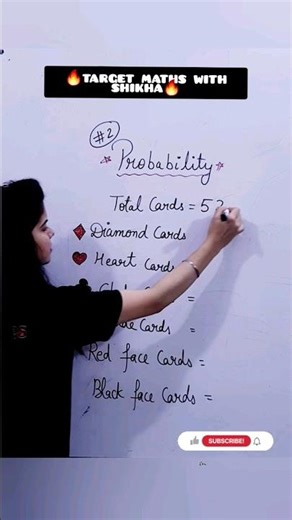 🔥TARGET MATHS WITH
SHIKHA🔥
#2
Probability
Total Cards = 52
Diamond Cards
Heart Cards
=
Cards =
Red face Cards =
Black face Cards =
SUBSCRIBE!